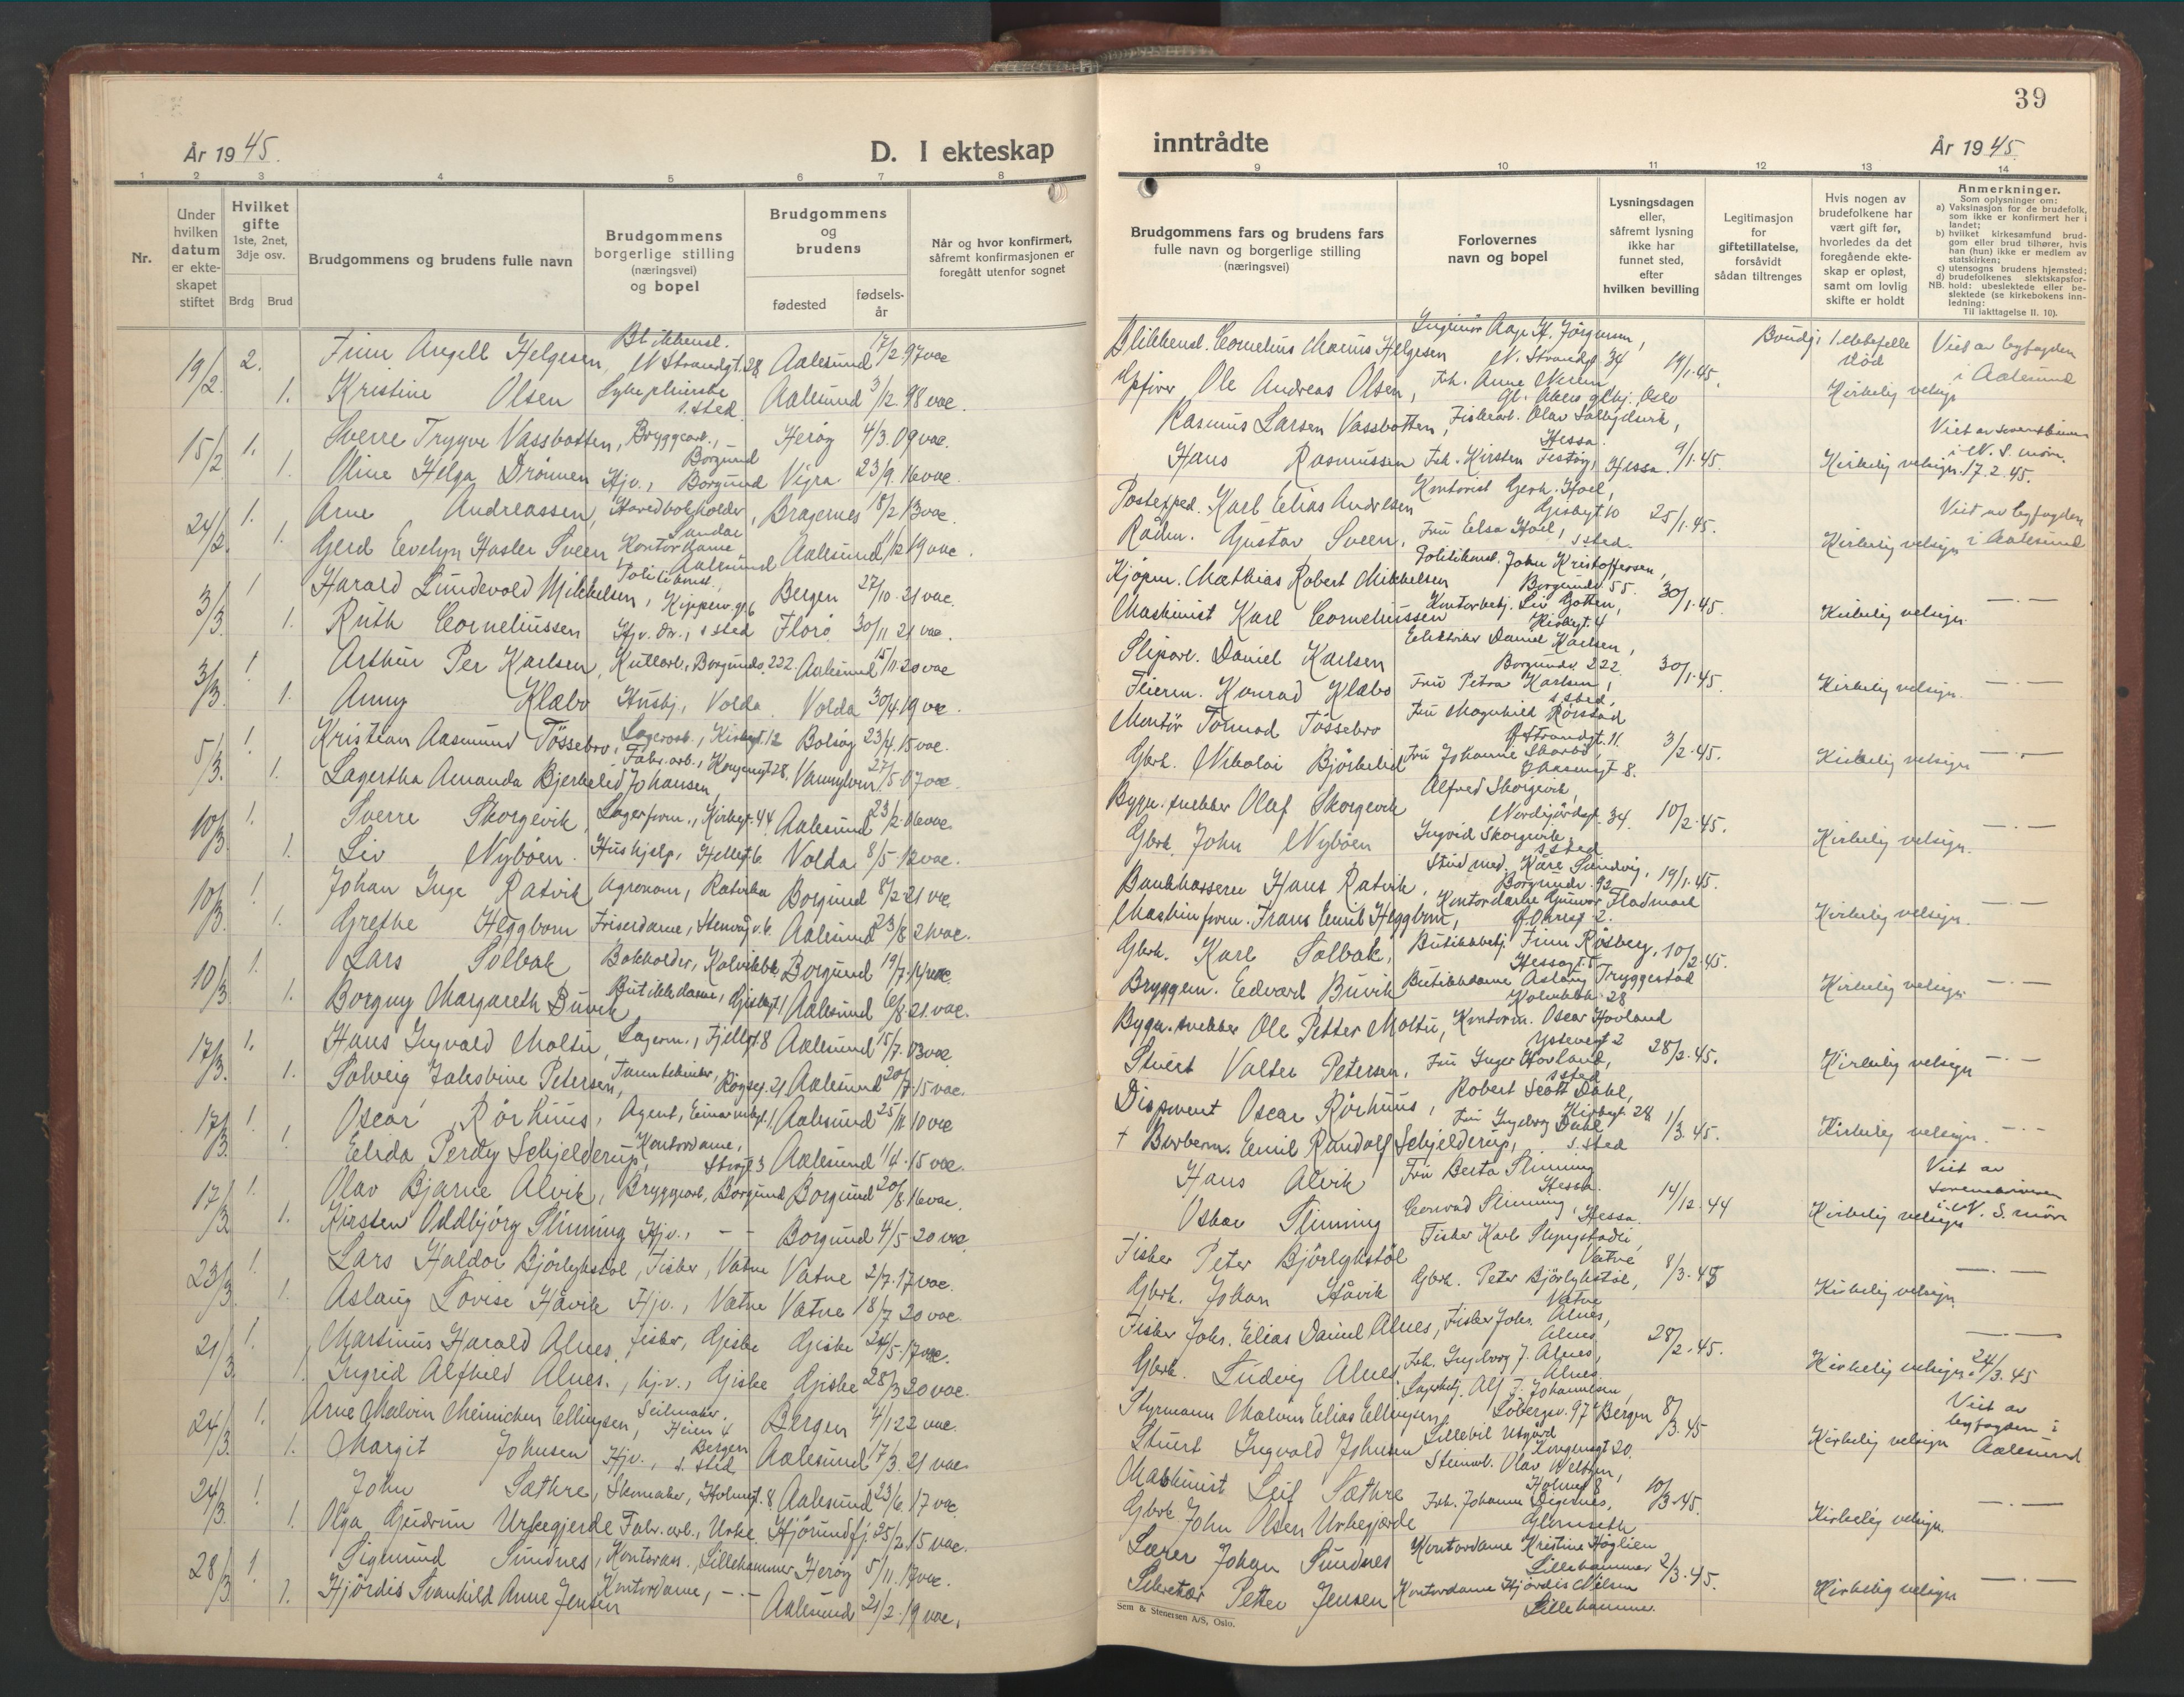 År 1945.
D. I ekteskap
1 2 3 4 5 6 7 8
Nr.
Under hvilken datum er ekteskapet stiftet
Hvilket gifte
1ste, 2net, 3dje osv.
Brdg Brud
Brudgommens og brudens fulle navn
Brudgommens borgerlige stilling (næringsvei) og bopel
Brudgommens og brudens
fødested
fødselsår
Når og hvor konfirmert, såfremt konfirmasjonen er foregått utenfor sognet
19/2. 2. Finn Angell Helgesen, Blikkensl. N. Strandgt. 28 Aalesund 17/2 97 vac
1. Kristine Olsen Sykepleierske s. sted Aalesund 3/12. 98 vac.
15/2 1. Sverre Trygve Vassbotten, Bryggearb., Borgund Herøy 4/3. 09 vac.
1. Oline Helga Drønnen Hjv., Borgund Vigra 23/9. 16 vac.
24/2. 1. Arne Andreassen, Hovedbokholder, Sandar Bragernes 18/2 13 vac.
1. Gerd Evelyn Hasler Sveen Kontordame Aalesund Aalesund 11/12 19 vac.
3/3. 1 Harald Lundevold Mikkelsen, Politikonst., Kipperv.gt. 6 Bergen 27/10. 21 vac.
1. Ruth Corneliussen Hjv. dr., s sted Florø 30/11 21 vac.
3/3. 1 Arthur Per Karlsen, Kullarb., Borgundv. 222. Aalesund 15/11. 20 vac
1. Anny Klæbo Hushj., Volda Volda 30/4. 19 vac.
5/3. 1. Kristian Aasmund Tøssebro, Lagerarb., Kirkegt. 12 Bolsøy 23/4. 15 vac.
1. Lagertha Amanda Bjerkelid Johansen, Fabr. arb., Kongensgt. 28, 27/5. 07 vac.
10/3. 1. Sverre Skorgevik, Lagerform., Kirkegt. 44 Aalesund 23/2. 06 vac.
1. Liv Nybøen. Hushjelp, Hellegt. 6. Volda 8/5 12 vac.
10/3. 1. Johan Inge Ratvik Agronom, Ratvika Borgund 8/2 21 vac.
1. Grethe Heggbom Friserdame, Stenvågv. 6. Aalesund 23/8 21 vac.
10/3 1. Lars Solbak Bokholder, Kolvikbk Borgund 19/7. 14 vac.
1. Borgny Margareth Buvik Butikkdame, Giskegt 1 Aalesund 6/8. 21. vac.
17/3. 1. Hans Ingvald Moltu, Lagerm., Fjellgt. 8 Aalesund 15/7. 03 vac
1. Solveig Jalesbine Petersen, Tanntekniker, Røysegt. 21. Aalesund 20/7. 15 vac.
17/3. 1. Oscar Rørhuus, Agent, Einarvikgt. 1, Aalesund 25/11. 10 vac
1. Elida Perdy Schjelderup, Kontordame, Storgt 3 Aalesund 1/4. 15 vac.
17/3 1. Olav Bjarne Alvik, Bryggearb, Borgund Borgund 20/8. 16 vac.
1. Kirsten Oddbjørg Slinning Hjv., - - Borgund 4/5 - 20 vac.
23/3. 1. Lars Haldor Bjørlykstøl, Fisker, Vatne Vatne 2/7. 17 vac.
1. Aslaug Lovise Håvik Hjv., Vatne Vatne 18/7 20 vac.
21/3. 1. Martinus Harald Alnes, fisker, Giske Giske 24/5. 17 vac.
1. Ingrid Alfhild Alnes., hjv., Giske Giske 28/3 20 vac.
24/3. 1. Arne Malvin Meinichen Ellingsen, Seilmaker, Heien 4 Bergen Bergen 4/1. 22 vac.
1. Margit Johnsen Hjv., s. sted Aalesund 17/3. 21 vac.
24/3. 1 John Sæthre, Skomaker, Holmegt. 8 Aalesund 23/6. 17 vac
1. Olga Gudrun Urkegjerde Fabr. arb., Urke Hjørundfj. 25/2. 15 vac.
28/3 1. Sigmund Sundnes, Kontorass., Lillehammer Herøy 5/11. 17 vac.
1. Hjørdis Svanhild Anne Jensen Kontordame, - - Aalesund 21/2. 19 vac.
39
inntrådte
År 1945.
9 10 11 12 13 14
Brudgommens fars og brudens fars
fulle navn og borgerlige stilling
(næringsvei)
Forlovernes navn og bopel
Lysningsdagen eller, såfremt lysning ikke har funnet sted, efter hvilken bevilling
Legitimasjon for giftetillatelse, forsåvidt sådan tiltrenges
Hvis nogen av brudefolkene har vært gift før, hvorledes da det foregående ekteskap er opløst, samt om lovlig skifte er holdt
Anmerkninger.
Som oplysninger om:
a) Vaksinasjon for de brudefolk, som ikke er konfirmert her i landet;
b) hvilket kirkesamfund brudgom eller brud tilhører, hvis han (hun) ikke er medlem av statskirken;
c) utensogns brudens hjemsted;
d) brudefolkenes slektskapsforhold: ubeslektede eller beslektede (se kirkebokens innledning:
NB.
Til iakttagelse II. 10).
Blikkensl. Cornelius Marius Helgesen Ingeniør Aage H. Jørgensen, N. Strandgt 34 19/1. 45. Brudgs 1. ektefelle død Viet av byfogden i Aalesund
Opfiver Ole Andreas Olsen, Frk. Anne Gl. Oslo Kirkelig velsign
Rasmus Larsen Vassbotten, Fiskearb. Olav Hessa. 9/1. 45. Viet av sorenskriveren i N. S. møre.
Hans Rasmussen Frk. Kirsten Festøy, Hessa. Kirkelig velsign. 17. 2. 45.
Postexped. Karl Elias Andresen Kontorist Gerh. Hoel, Giskegt 10 25/1. 45. Viet av byfogden i Aalesund
Rådm. Gustav Sveen, Fru Elsa Hoel, s sted. Kirkelig velsign
Kjøpm. Mathias Robert Mikkelsen Politikonst. John Kristoffersen, Borgundv. 55. 30/1. 45.
Maskinist Karl Corneliussen Kontorbetj. Liv Gotten, Kirkegt. 4 Kirkelig velsign. - . -
Sliparb. Daniel Karlsen Elektriker Daniel Karlsen, Borgundv. 222 30/1. 45.
Feierm. Konrad Klæbo Fru Petra Karlsen, s sted, Kirkelig velsign. - . -
Montør Tormod Tøssebro Fru Magnhild Rørstad Ø Strandgt. 11. 3/2. 45.
Gbrk. Nikolai Bjørkelid Fru Johanne 8. Kirkelig velsign - . -
Bygn. snekker Olaf Skorgevik Alfred Skorgevik, 34. 10/2. 45.
Gbrk. John Nybøen Ingrid Skorgevik, s sted Kirkelig velsign. - . -
Bankkasserer Hans Ratvik, Stud med. Kåre Sundvig, Borgundv. 92 19/1. 45.
Maskinform. Frans Emil Heggbom, Kontordame Gunvor Fladmark 2. Kirkelig velsign. - . -
Gbrk. Karl Solbak, Butikkbetj. Finn Røsberg, Hessagt. 5 10/2. 45.
Bryggem. Edvard Buvik Butikkdame Aslaug Tryggestad Kolvikbk. 28 Kirkelig velsign - . -
Bygn. snekker Ole Petter Moltu, Kontorm. Oscar Hovland Ystenesgt 2 28/2. 45.
Stuert Valter Petersen, Fru Inger Hovland, s sted Kirkelig velsign - . -
Disponent Oscar Rørhuus, Robert Scott Dahl, Kirkegt. 28 1/3. 45.
+ Barberm. Emil Randolf Schjelderup, Fru Ingeborg Dahl s. sted Kirkelig velsign. - . -
Hans Alvik Fru Berta Slinning Hessa. 14/12. 44 Viet av sorenskriveren i N. S. møre
Oskar Slinning Conrad Slinning, Hessa. Kirkelig velsign
Fisker Peter Bjørlykstøl Fisker Karl Slyngstadli, Vatne 8/3. 45
Gbrk. Johan Håvik Gbrk. Peter Bjørlykstøl, Vatne Kirkelig velsign - . -
Fisker Johs. Elias Daniel Alnes, Fisker Johs. Alnes, Alnes 28/2. 45.
Gbrk. Ludvig Alnes Frk. Ingeborg J. Alnes, Alnes Kirkelig velsign. 24/3. 45
Styrmann Malvin Elias Ellingsen, Lagerbetj. Alf J. Johannesen, Løbergsv. 97 Bergen 8/3. 45 Viet av byfogden i Aalesund
Stuert Ingvald Johnsen Lillebil Utgård Kongensgt 20. Kirkelig velsign
Maskinist Leif Sæthre Steinarb. Olav Holmegt 8 10/3. 45.
Gbrk. John Olsen Urkegjerde Frk. Johanna Digernes, Kirkelig velsign. - . -
Lærer Johan Sundnes Kontordame Kristine Høglien Lillehammer 2/3. 45.
Sekretær Petter Jensen Kontordame Hjørdis Nilsen Lillehammer. Kirkelig velsign - . -
Sem & Stenersen A/S, Oslo.